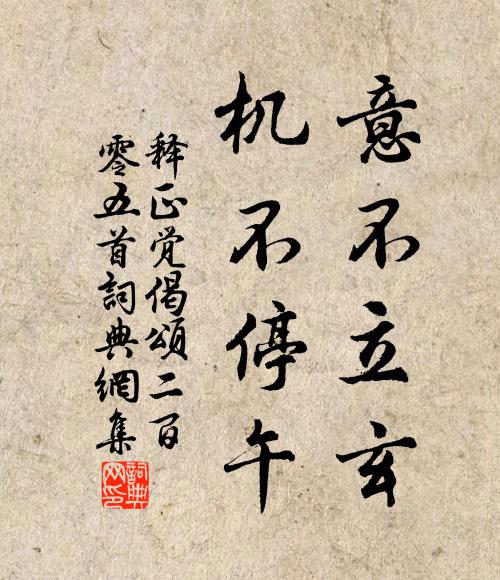 意不立玄
机不停午
释正觉偈頌二百
零五首詞典網集
詞典
网印